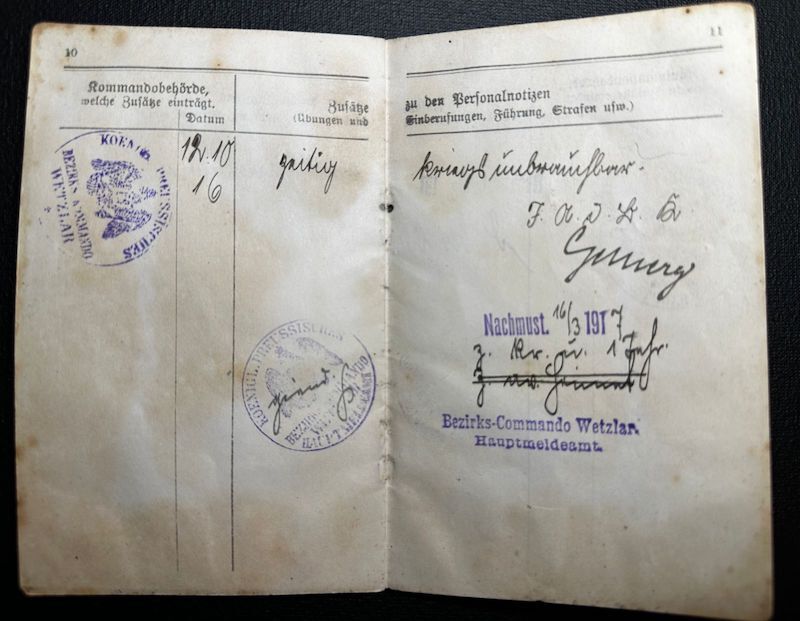 10
Kommandobehörde,
welche Zusätze einträgt.
Datum
Zusätze
(Übungen und
KOENIGL. PREUSSISCHES
BEZIRKS KOMMANDO
WETZLAR
12.10
16
zeitig
KOENIGL. PREUSSISCHES
BEZIRKS KOMMANDO
HAUPTMELDEAMT
11
zu den Personalnotizen
Einberufungen, Führung, Strafen usw.)
kriegsunbrauchbar.
Nachmust. 16/3 1917
z. Kr. u. 1 Jahr.
Bezirks-Commando Wetzlar.
Hauptmeldeamt.